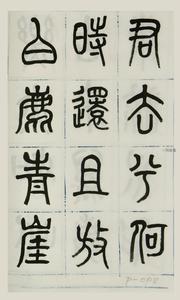 君去兮何
時還且放
白鹿青崖